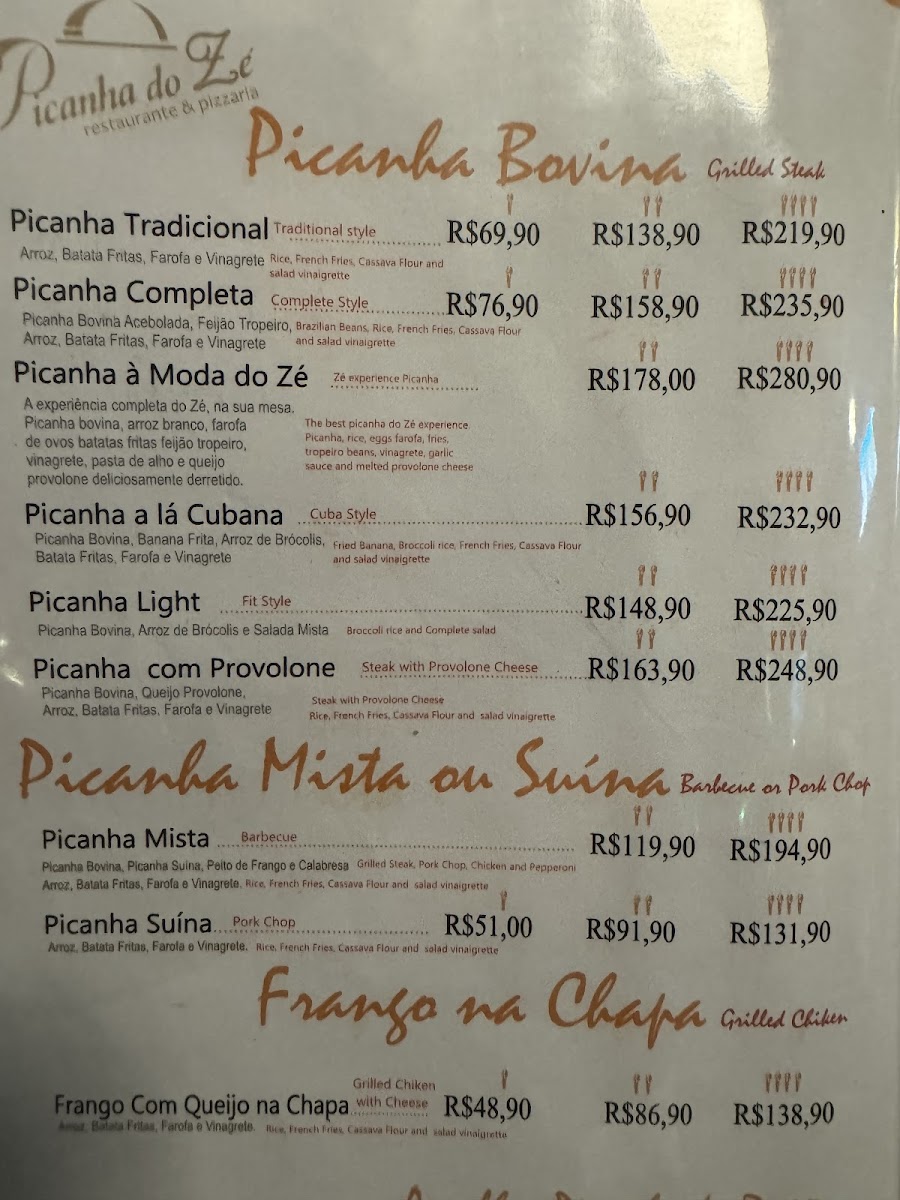 Picanha do Zé
restaurante & pizzaria
Picanha Bovina Grilled Steak
Picanha Tradicional Traditional style R$69,90 R$138,90 R$219,90
Arroz, Batata Fritas, Farofa e Vinagrete Rice, French Fries, Cassava Flour and
salad vinaigrette
Picanha Completa Complete Style R$76,90 R$158,90 R$235,90
Picanha Bovina Acebolada, Feijão Tropeiro, Brazilian Beans, Rice, French Fries, Cassava Flour
Arroz, Batata Fritas, Farofa e Vinagrete and salad vinaigrette
Picanha à Moda do Zé Zé experience Picanha R$178,00 R$280,90
A experiência completa do Zé, na sua mesa.
Picanha bovina, arroz branco, farofa
de ovos batatas fritas feijão tropeiro,
vinagrete, pasta de alho e queijo
provolone deliciosamente derretido.
The best picanha do Zé experience
Picanha, rice, eggs farofa, fries,
tropeiro beans, vinagrete, garlic
sauce and melted provolone cheese
Picanha a lá Cubana Cuba Style R$156,90 R$232,90
Picanha Bovina, Banana Frita, Arroz de Brócolis, Fried Banana, Broccoli rice, French Fries, Cassava Flour
Batata Fritas, Farofa e Vinagrete and salad vinaigrette
Picanha Light Fit Style R$148,90 R$225,90
Picanha Bovina, Arroz de Brócolis e Salada Mista Broccoli rice and Complete salad
Picanha com Provolone Steak with Provolone Cheese R$163,90 R$248,90
Picanha Bovina, Queijo Provolone, Steak with Provolone Cheese
Arroz, Batata Fritas, Farofa e Vinagrete Rice, French Fries, Cassava Flour and salad vinaigrette
Picanha Mista ou Suína Barbecue or Pork Chop
Picanha Mista Barbecue R$119,90 R$194,90
Picanha Bovina, Picanha Suína, Peito de Frango e Calabresa Grilled Steak, Pork Chop, Chicken and Pepperoni
Arroz, Batata Fritas, Farofa e Vinagrete. Rice, French Fries, Cassava Flour and salad vinaigrette
Picanha Suína Pork Chop R$51,00 R$91,90 R$131,90
Arroz, Batata Fritas, Farofa e Vinagrete. Rice, French Fries, Cassava Flour and salad vinaigrette
Frango na Chapa Grilled Chiken
Frango Com Queijo na Chapa Grilled Chiken with Cheese R$48,90 R$86,90 R$138,90
Arroz, Batata Fritas, Farofa e Vinagrete. Rice, French Fries, Cassava Flour and salad vinaigrette